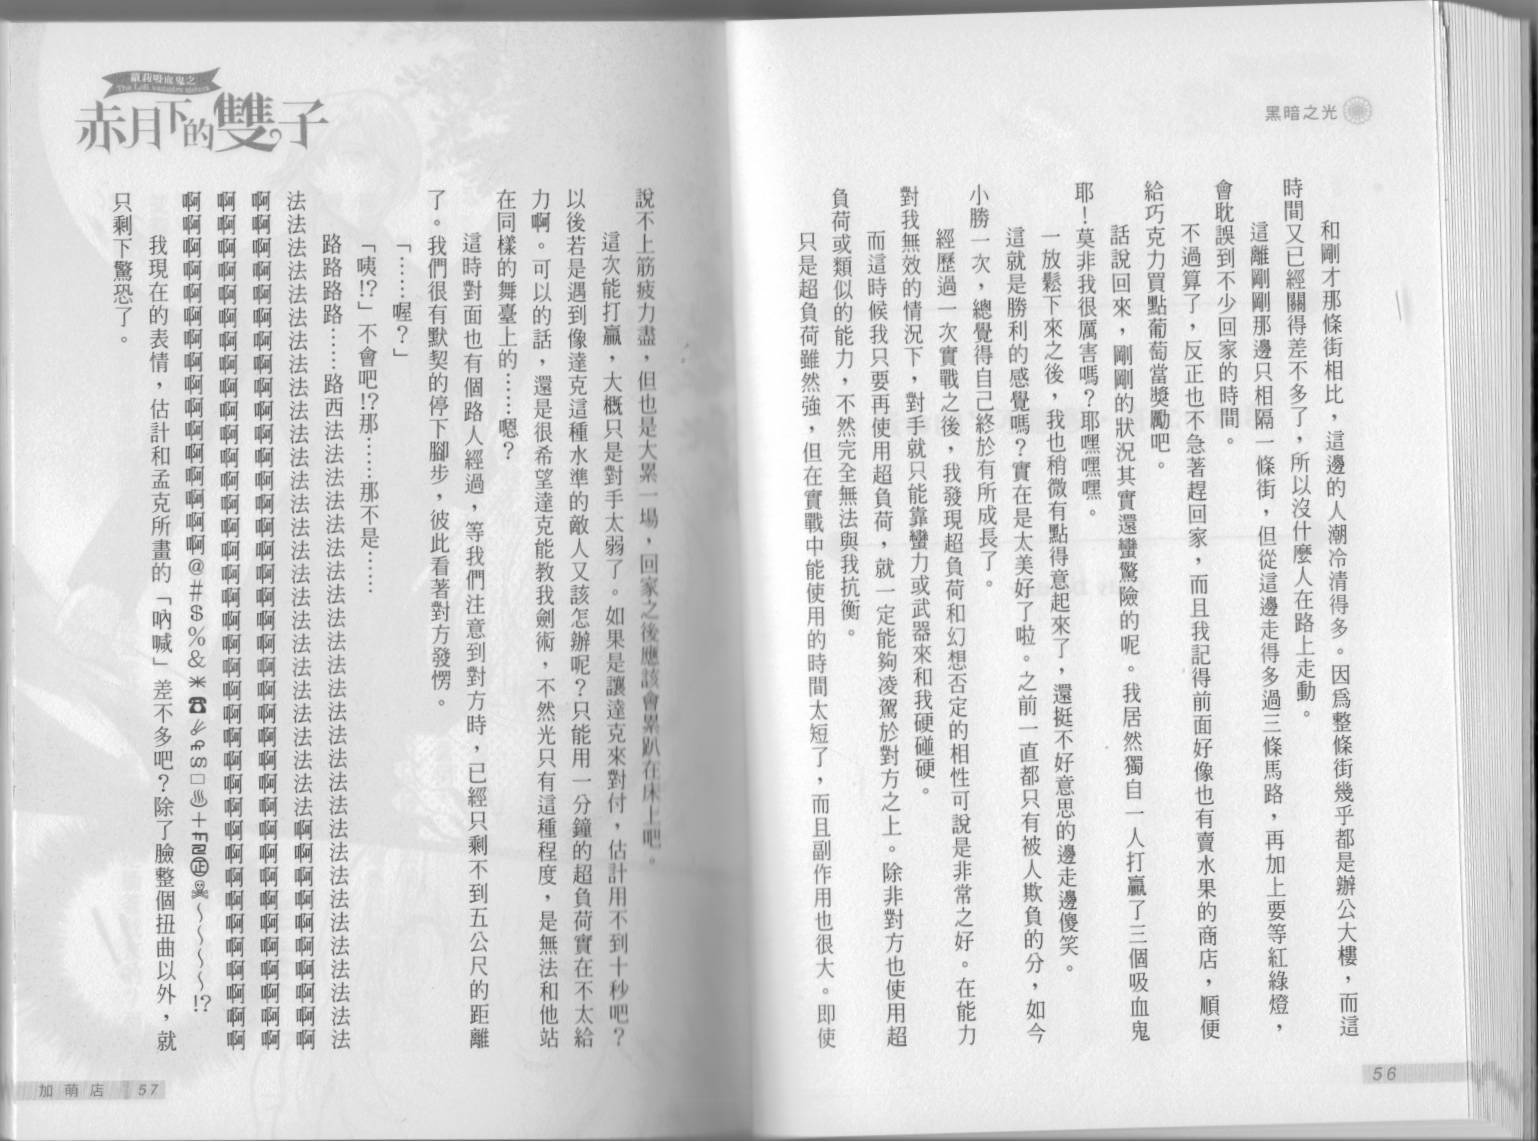 黑暗之光
和剛才那條街相比，這邊的人潮冷清得多。因爲整條街幾乎都是辦公大樓，而這
時間又已經關得差不多了，所以沒什麼人在路上走動。
這離剛剛那邊只相隔一條街，但從這邊走得多過三條馬路，再加上要等紅綠燈，
會耽誤到不少回家的時間。
不過算了，反正也不急著趕回家，而且我記得前面好像也有賣水果的商店，順便
給巧克力買點葡萄當獎勵吧。
話說回來，剛剛的狀況其實還蠻驚險的呢。我居然獨自一人打贏了三個吸血鬼
耶！莫非我很厲害嗎？耶嘿嘿嘿。
一放鬆下來之後，我也稍微有點得意起來了，還挺不好意思的邊走邊傻笑。
這就是勝利的感覺嗎？實在是太美好了啦。之前一直都只有被人欺負的分，如今
小勝一次，總覺得自己終於有所成長了。
經歷過一次實戰之後，我發現超負荷和幻想否定的相性可說是非常之好。在能力
對我無效的情況下，對手就只能靠蠻力或武器來和我硬碰硬。
而這時候我只要再使用超負荷，就一定能夠凌駕於對方之上。除非對方也使用超
負荷或類似的能力，不然完全無法與我抗衡。
只是超負荷雖然強，但在實戰中能使用的時間太短了，而且副作用也很大。即使
56
蘿莉吸血鬼之
The Loli vampire sisters
赤月下的雙子
說不上筋疲力盡，但也是大累一場，回家之後應該會累趴在床上吧。
這次能打贏，大概只是對手太弱了。如果是讓達克來對付，估計用不到十秒吧？
以後若是遇到像達克這種水準的敵人又該怎辦呢？只能用一分鐘的超負荷實在不太給
力啊。可以的話，還是很希望達克能教我劍術，不然光只有這種程度，是無法和他站
在同樣的舞臺上的……嗯？
這時對面也有個路人經過，等我們注意到對方時，已經只剩不到五公尺的距離
了。我們很有默契的停下腳步，彼此看著對方發愣。
「……喔？」
「咦!?」不會吧!?那……那不是……
路路路路……路西法法法法法法法法法法法法法法法法法法法法法法法法法法法
法法法法法法法法法法法法法法法法法法法法法法法法法法法啊啊啊啊啊啊啊啊啊啊
啊啊啊啊啊啊啊啊啊啊啊啊啊啊啊啊啊啊啊啊啊啊啊啊啊啊啊啊啊啊啊啊啊啊啊啊啊
啊啊啊啊啊啊啊啊啊啊啊啊啊啊啊啊啊啊啊啊啊啊啊啊啊啊啊啊啊啊啊啊啊啊啊啊啊
啊啊啊啊啊啊啊啊啊啊啊啊啊啊啊啊@#$%&＊☎□♨＋㊣☠～～～～!?
我現在的表情，估計和孟克所畫的「吶喊」差不多吧？除了臉整個扭曲以外，就
只剩下驚恐了。
加萌店 57